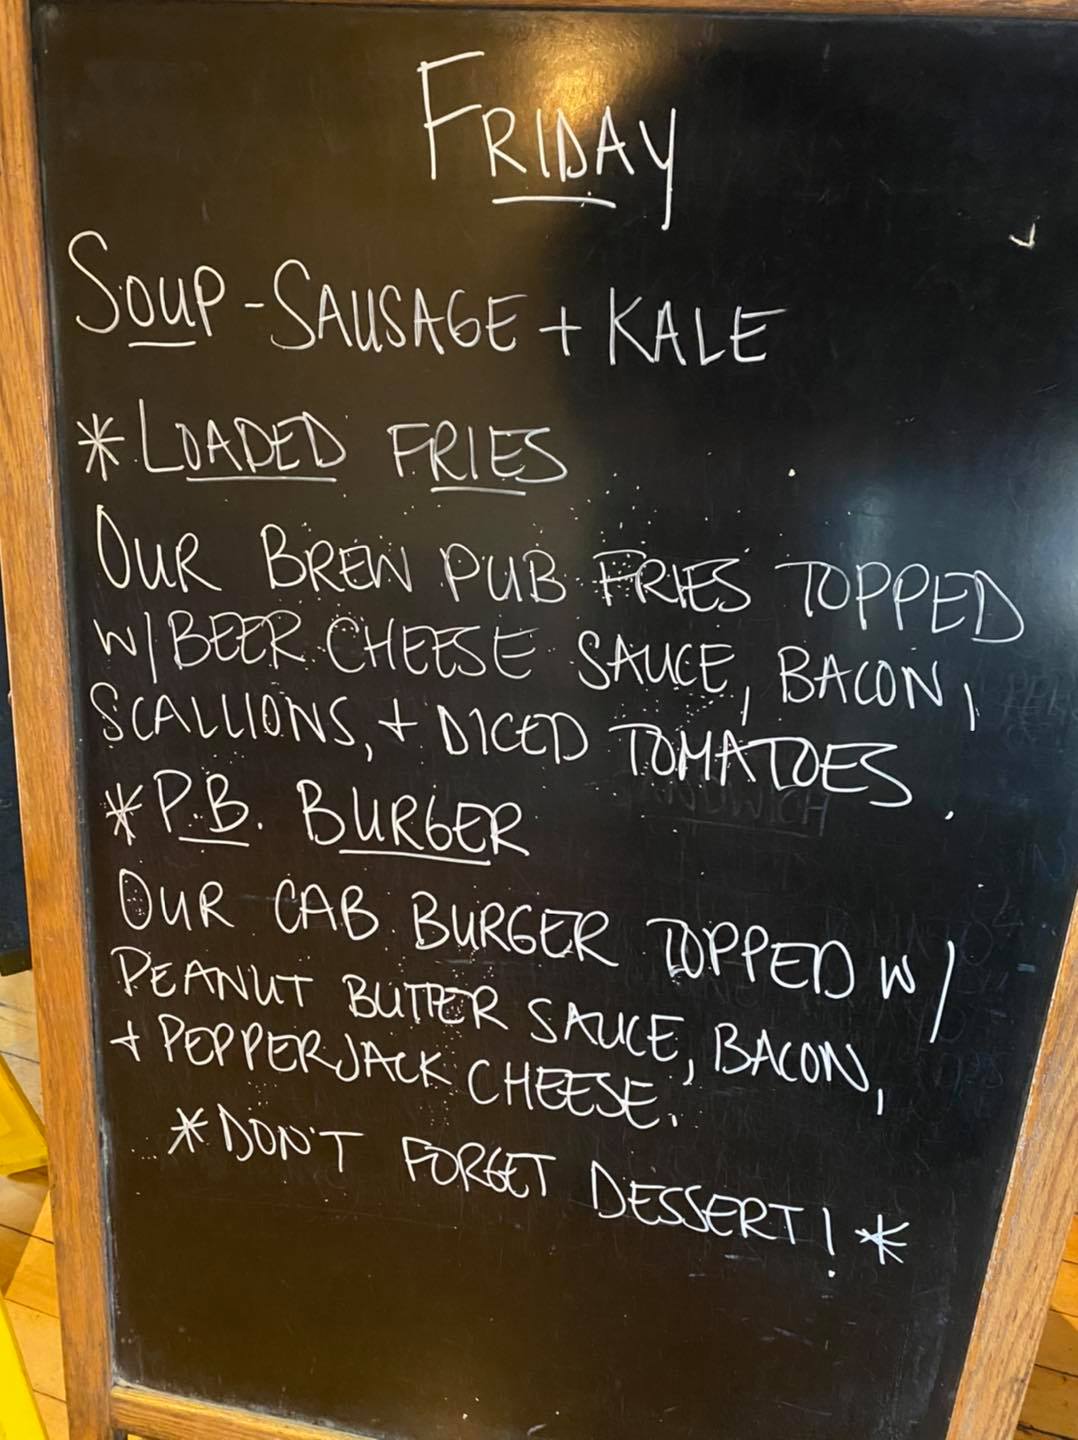 FRIDAY
SOUP - SAUSAGE + KALE
* LOADED FRIES
OUR BREW PUB FRIES TOPPED
W/ BEER CHEESE SAUCE, BACON,
SCALLIONS, + DICED TOMATOES.
* P.B. BURGER
OUR CAB BURGER TOPPED W/
PEANUT BUTTER SAUCE, BACON,
+ PEPPERJACK CHEESE.
* DON'T FORGET DESSERT! *